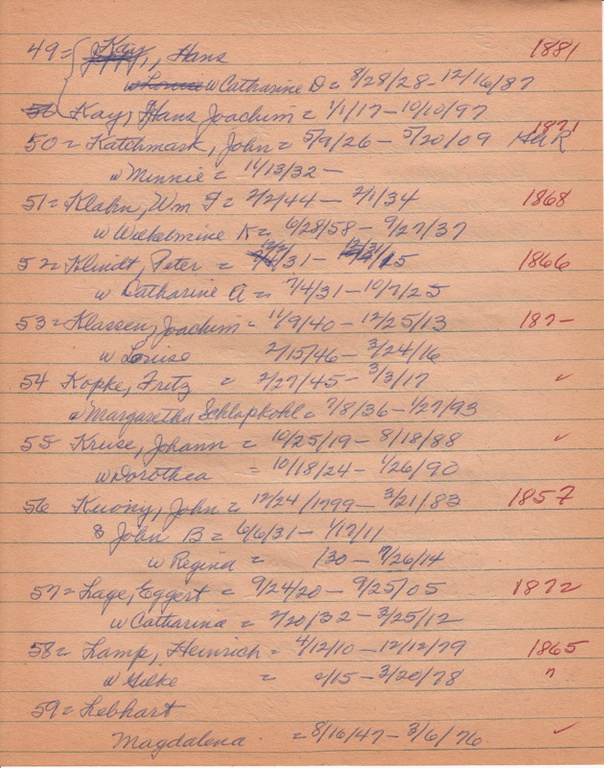 49 = { Kay, Hans 1881
w Catharine D = 8/28/28 - 12/16/87
Kay, Hans Joachim = 1/1/17 - 10/10/97
50 = Katchmark, John = 5/9/26 - 5/20/09 1871
w Minnie = 11/13/32 -
51 = Klahn, Wm F = 2/2/44 - 2/1/34 1868
w Wilhelmine K = 6/28/58 - 9/27/37
52 = Klindt, Peter = /31 - 15 1866
w Catharine A = 7/4/31 - 10/7/25
53 = Klassen, Joachim = 11/9/40 - 12/25/13 187-
w Louise 2/15/46 - 3/24/16
54 Kopke, Fritz = 2/27/45 - 3/3/17 ✓
w Margaretha Schlapkohl = 7/8/36 - 1/27/93
55 Kruse, Johann = 10/25/19 - 8/18/88 ✓
w Dorothea = 10/18/24 - 1/26/90
56 Kuony, John = 12/24/1799 - 3/21/83 1857
& John B = 6/6/31 - 1/17/11
w Regina = /30 - 7/26/14
57 = Lage, Eggert = 9/24/20 - 9/25/05 1872
w Catharina = 2/20/32 - 3/25/12
58 = Lamp, Heinrich = 4/12/10 - 12/12/79 1865
w Silke = /15 - 3/20/78 "
59 = Lebhart
Magdalena = 8/16/47 - 3/6/76 ✓